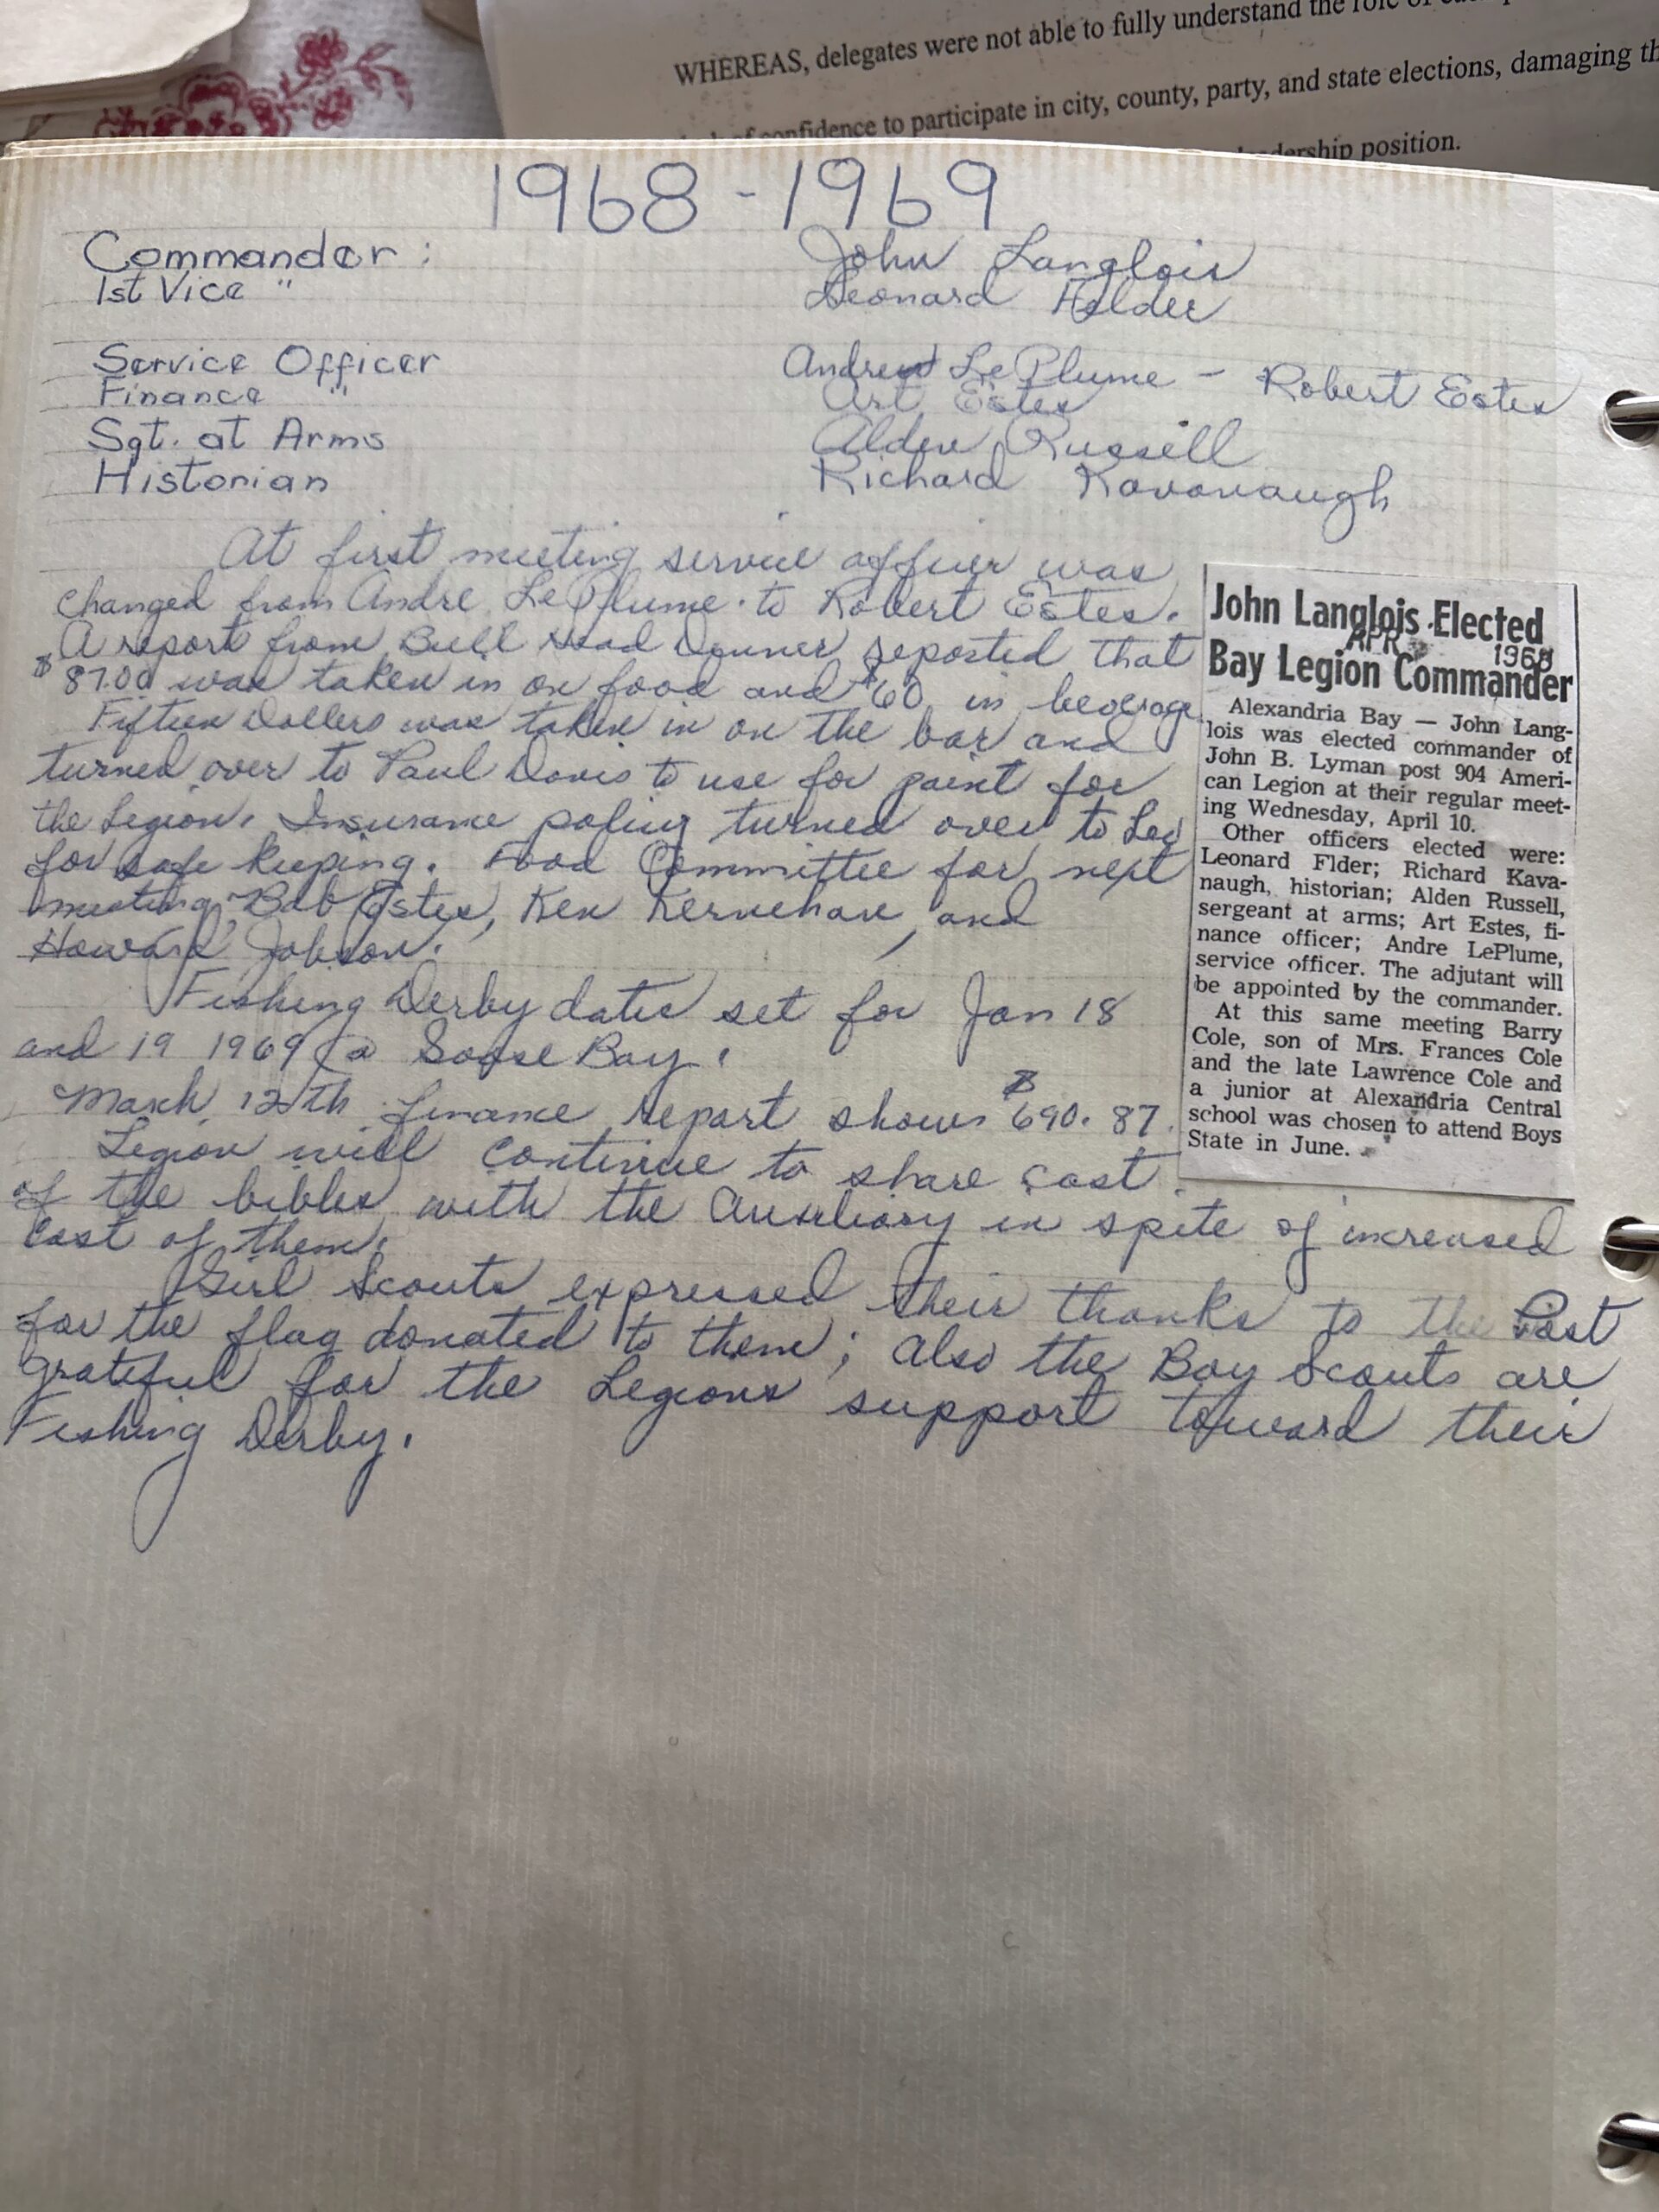 WHEREAS, delegates were not able to fully understand the role of
of confidence to participate in city, county, party, and state elections, damaging th
leadership position.
1968 - 1969
Commander : John Langlois
1st Vice " Leonard Helder
Service Officer Andrew LePlume - Robert Estes
Finance " Art Estes
Sgt. at Arms Alden Russell
Historian Richard Kavanaugh
At first meeting service officer was
changed from Andre LePlume to Robert Estes.
A report from Bull Head Dinner reported that
$87.00 was taken in on food and $60 in beverage.
Fifteen Dollers was taken in on the bar and
turned over to Paul Davis to use for paint for
the Legion. Insurance policy turned over to Leo
for safe keeping. Food Committee for next
meeting, Bob Estes, Ken Kernehan, and
Howard Jobson.
Fishing Derby dates set for Jan 18
and 19 1969 @ Goose Bay.
March 12th finance report shows $690.87.
Legion will continue to share cost
of the bibles with the Auxiliary in spite of increased
cost of them.
Girl Scouts expressed their thanks to the Post
for the flag donated to them; also the Boy Scouts are
grateful for the Legions support toward their
Fishing Derby.
John Langlois Elected
APR 1968
Bay Legion Commander
Alexandria Bay — John Lang-
lois was elected commander of
John B. Lyman post 904 Ameri-
can Legion at their regular meet-
ing Wednesday, April 10.
Other officers elected were:
Leonard Flder; Richard Kava-
naugh, historian; Alden Russell,
sergeant at arms; Art Estes, fi-
nance officer; Andre LePlume,
service officer. The adjutant will
be appointed by the commander.
At this same meeting Barry
Cole, son of Mrs. Frances Cole
and the late Lawrence Cole and
a junior at Alexandria Central
school was chosen to attend Boys
State in June.